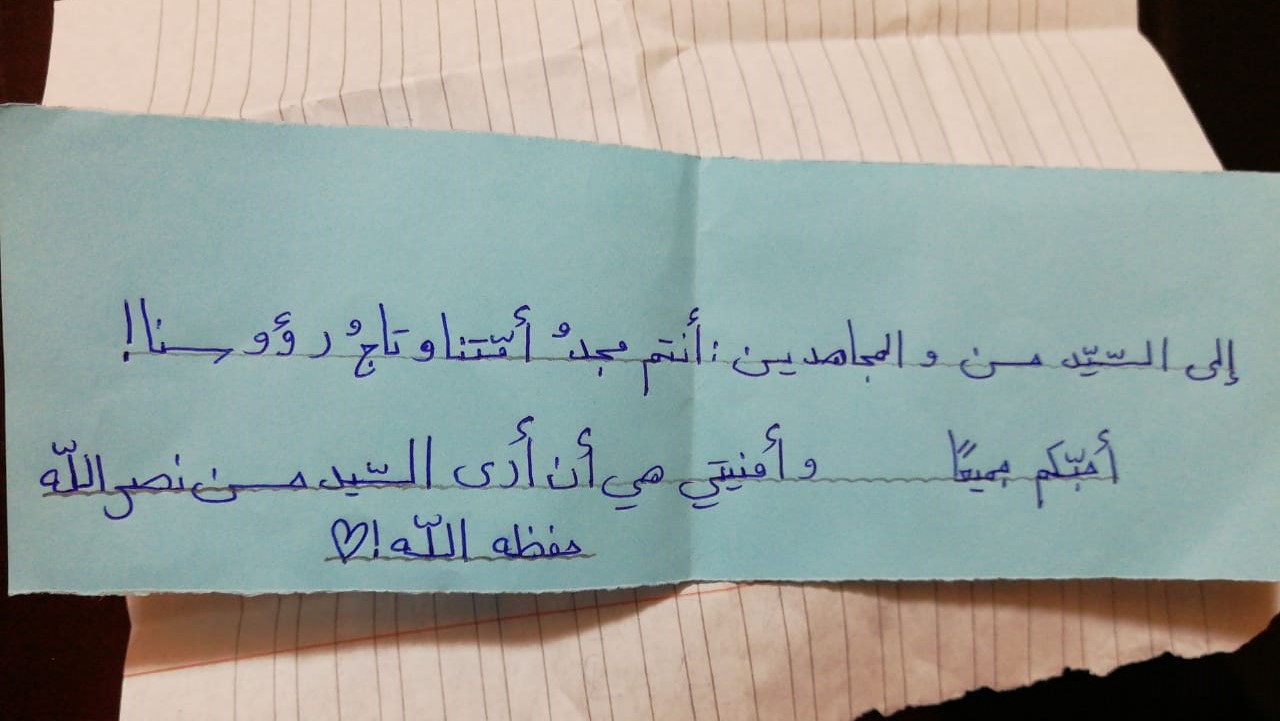 إلى السّيّد حسن و المجاهدين : أنتم مجدُ أمّتنا و تاجُ رؤوسنا!
أحبّكم جميعًا وأمنيتي هي أن أرى السّيد حسن نصر اللّه
حفظه اللّه!♡